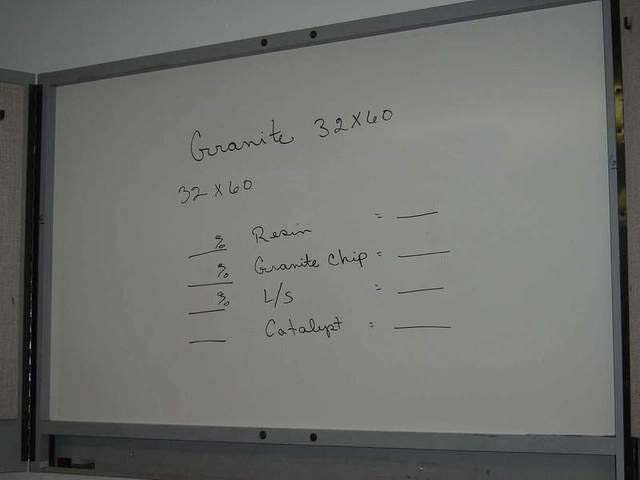 Granite 32x60
32 x 60
___% Resin = ___
___% Granite Chip = ___
___% L/S = ___
___ Catalyst = ___